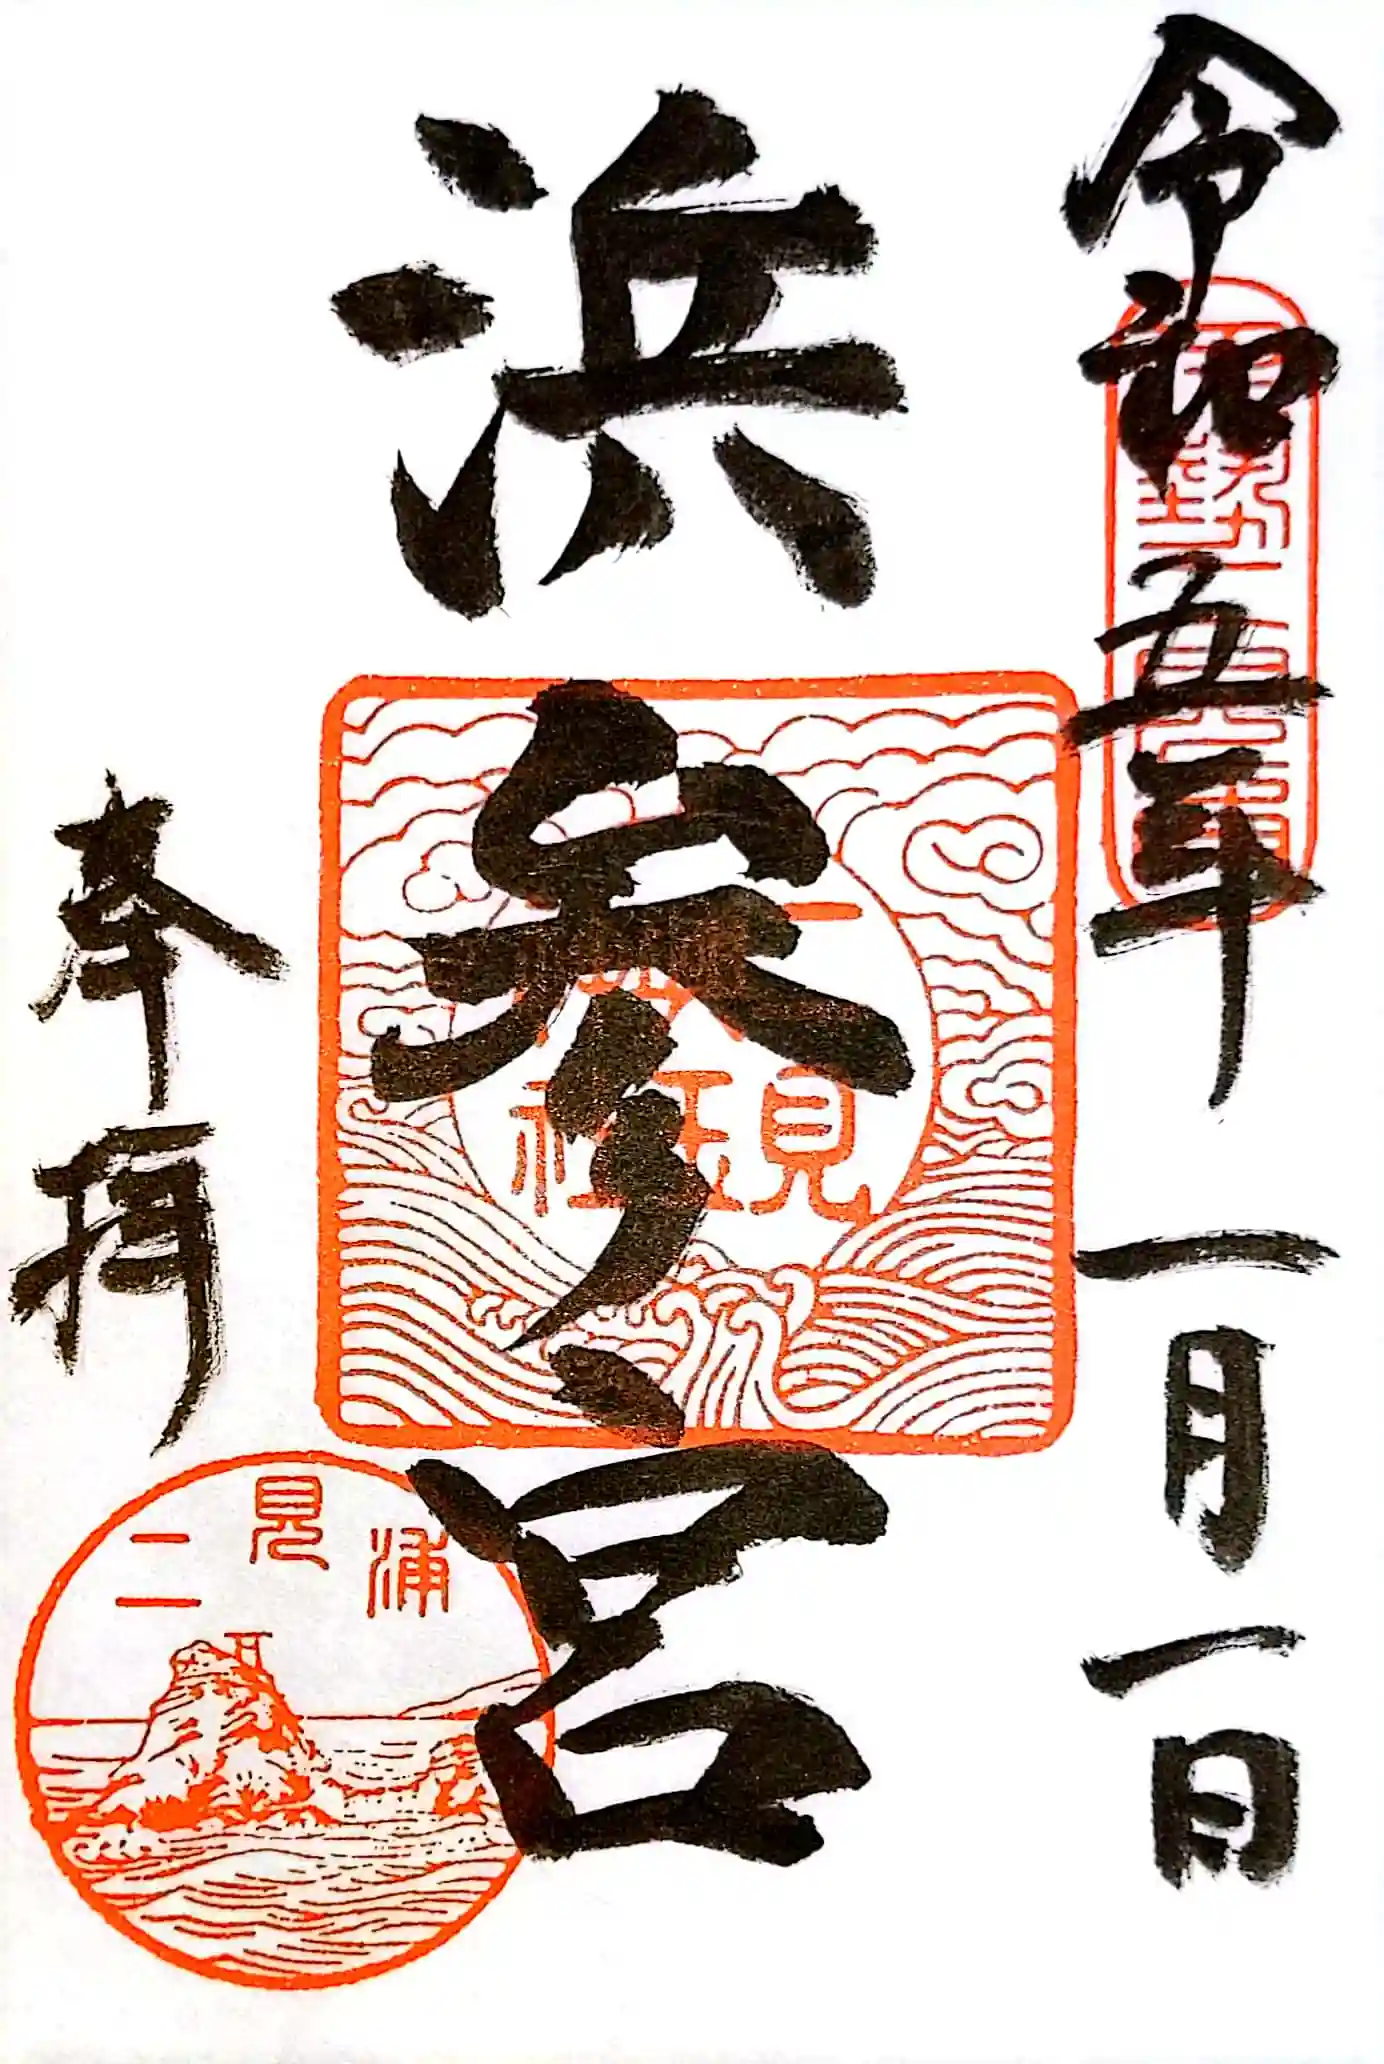 令和五年一月一日
浜参宮
二見
興玉
神社
奉拝
二見浦